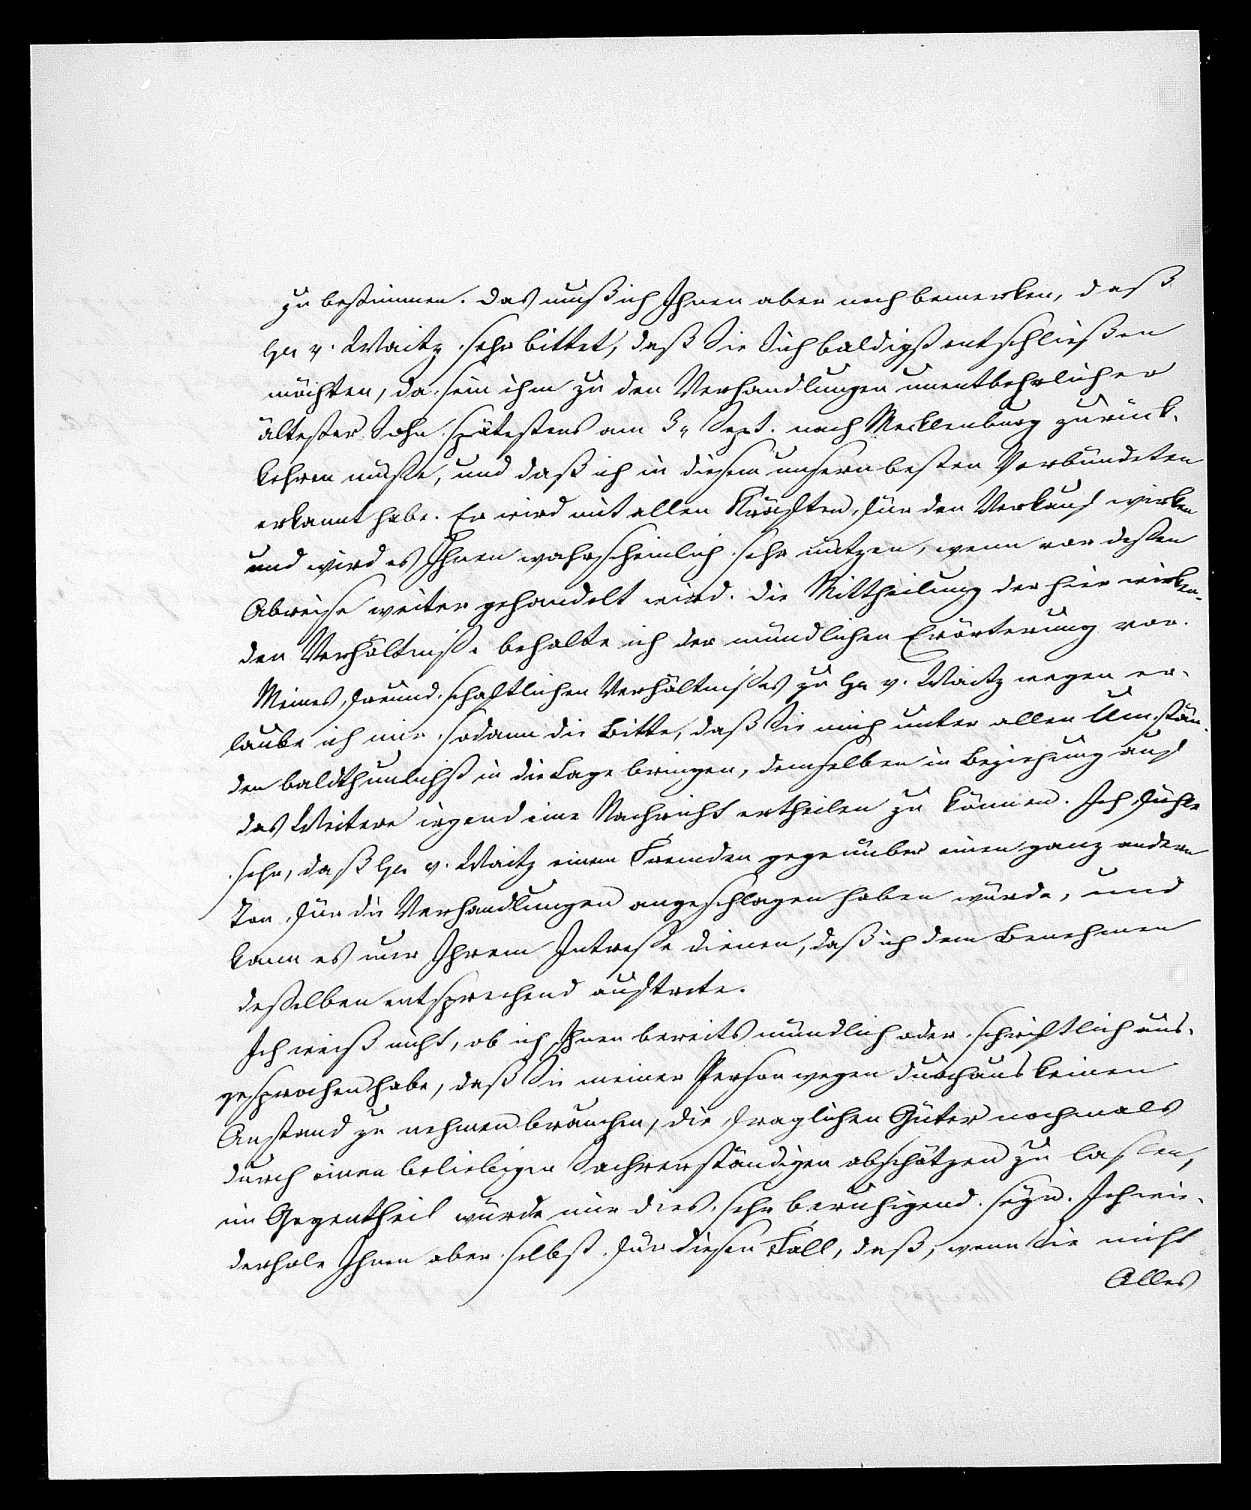 zu bestimmen. Das muß ich Ihnen aber noch bemerken, daß
Hr v. Waitz sehr bittet, daß Sie Sich baldigst entschließen
möchten, da sein ihm zu den Verhandlungen unentbehrlicher
ältester Sohn spätestens am 3n Sept. nach Mecklenburg zurück-
kehren müsse, und daß ich in diesem unsern besten Verbündeten
erkannt habe. Er wird mit allen Kräften für den Verkauf wirken
und wird es Ihnen wahrscheinlich sehr nützen, wenn vor dessen
Abreise weiter gehandelt wird. Die Mittheilung der hier wirken-
den Verhältnisse behalte ich der mündlichen Erörterung vor.
Meines freundschaftlichen Verhältnisses zu Hr v. Waitz wegen er-
laube ich mir sodann die Bitte, daß Sie mich unter allen Umstän-
den baldthunlichst in die Lage bringen, demselben in Beziehung auf
das Weitere irgend eine Nachricht ertheilen zu können. Ich fühle
sehr, daß Hr v. Waitz einem Fremden gegenüber einen ganz andern
Ton für die Verhandlungen angeschlagen haben würde, und
kann es nur Ihrem Intresse dienen, daß ich dem Benehmen
desselben entsprechend auftrete.
Ich weiß nicht, ob ich Ihnen bereits mündlich oder schriftlich aus-
gesprochen habe, daß Sie meiner Person wegen durchaus keinen
Anstand zu nehmen brauchen, die fraglichen Güter nochmals
durch einen beliebigen Sachverständigen abschätzen zu lassen,
im Gegentheil würde mir dies sehr beruhigend seyn. Ich wie-
derhole Ihnen aber selbst für diesen Fall, daß, wenn Sie nicht
Alles